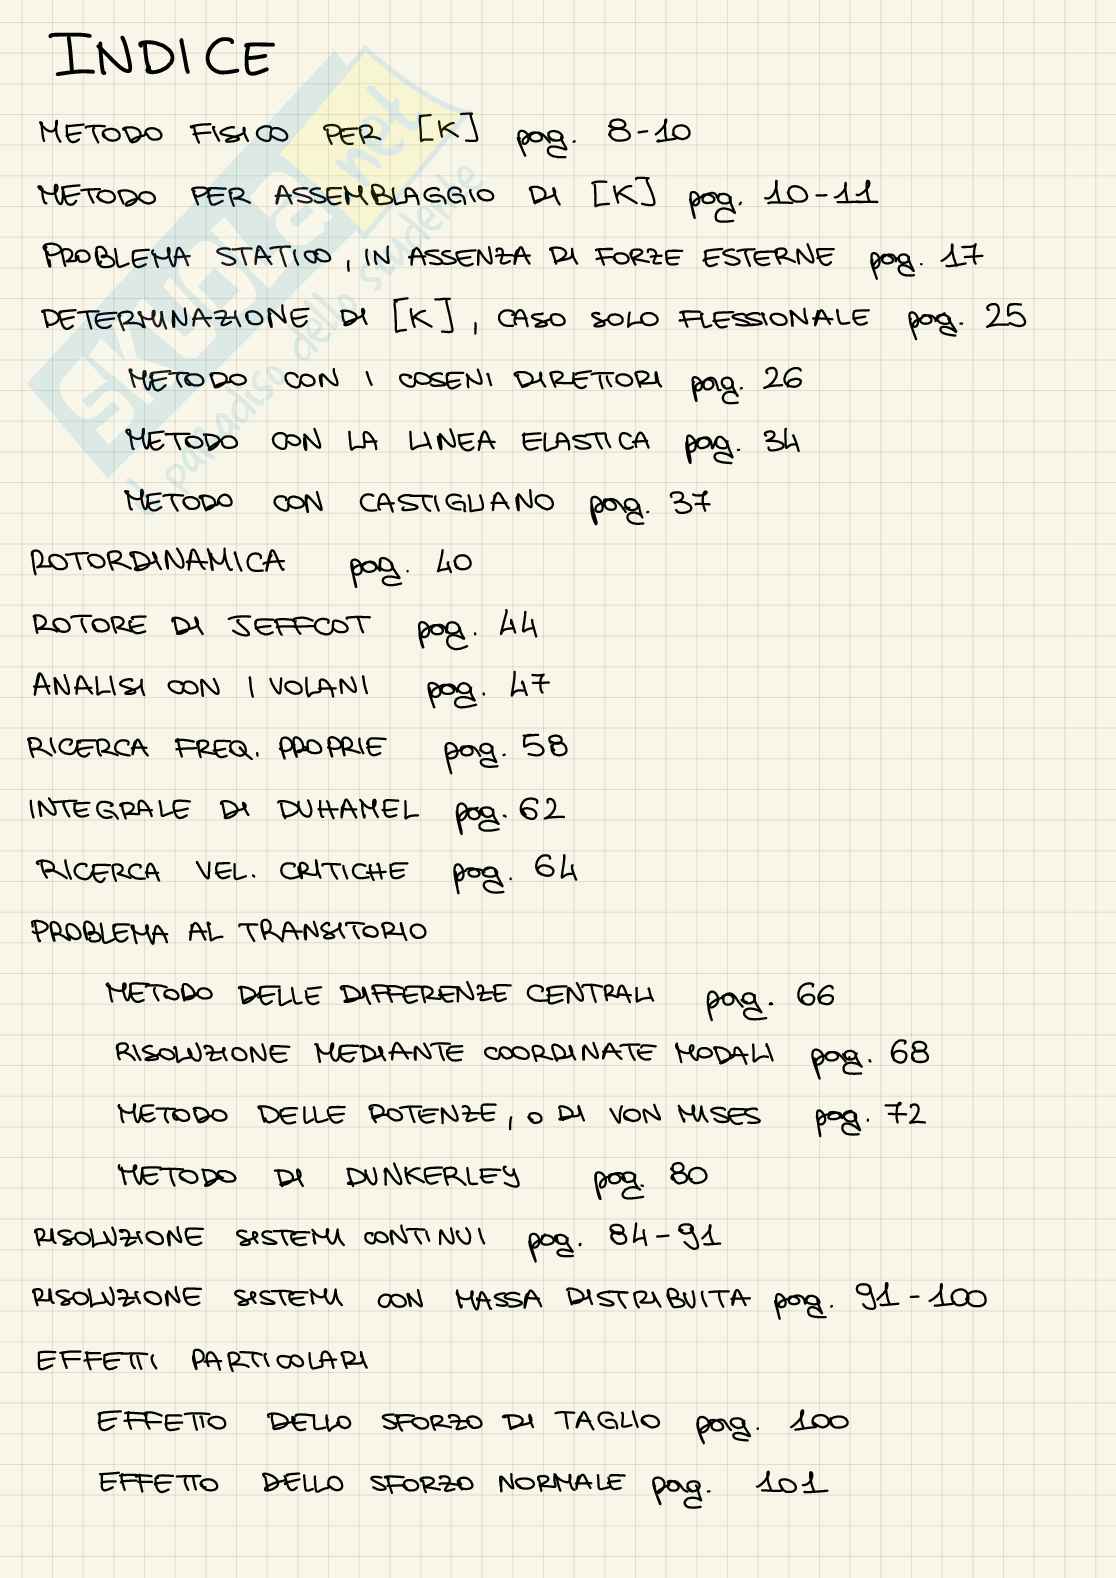 INDICE
METODO FISICO PER [K] pag. 8-10
METODO PER ASSEMBLAGGIO DI [K] pag. 10-11
PROBLEMA STATICO, IN ASSENZA DI FORZE ESTERNE pag. 17
DETERMINAZIONE DI [K], CASO SOLO FLESSIONALE pag. 25
METODO CON I COSENI DIRETTORI pag. 26
METODO CON LA LINEA ELASTICA pag. 34
METODO CON CASTIGLIANO pag. 37
ROTORDINAMICA pag. 40
ROTORE DI JEFFCOT pag. 44
ANALISI CON I VOLANI pag. 47
RICERCA FREQ. PROPRIE pag. 58
INTEGRALE DI DUHAMEL pag. 62
RICERCA VEL. CRITICHE pag. 64
PROBLEMA AL TRANSITORIO
METODO DELLE DIFFERENZE CENTRALI pag. 66
RISOLUZIONE MEDIANTE COORDINATE MODALI pag. 68
METODO DELLE POTENZE, O DI VON MISES pag. 72
METODO DI DUNKERLEY pag. 80
RISOLUZIONE SISTEMI CONTINUI pag. 84-91
RISOLUZIONE SISTEMI CON MASSA DISTRIBUITA pag. 91-100
EFFETTI PARTICOLARI
EFFETTO DELLO SFORZO DI TAGLIO pag. 100
EFFETTO DELLO SFORZO NORMALE pag. 101
SKUOLA.net
il paradiso dello studente